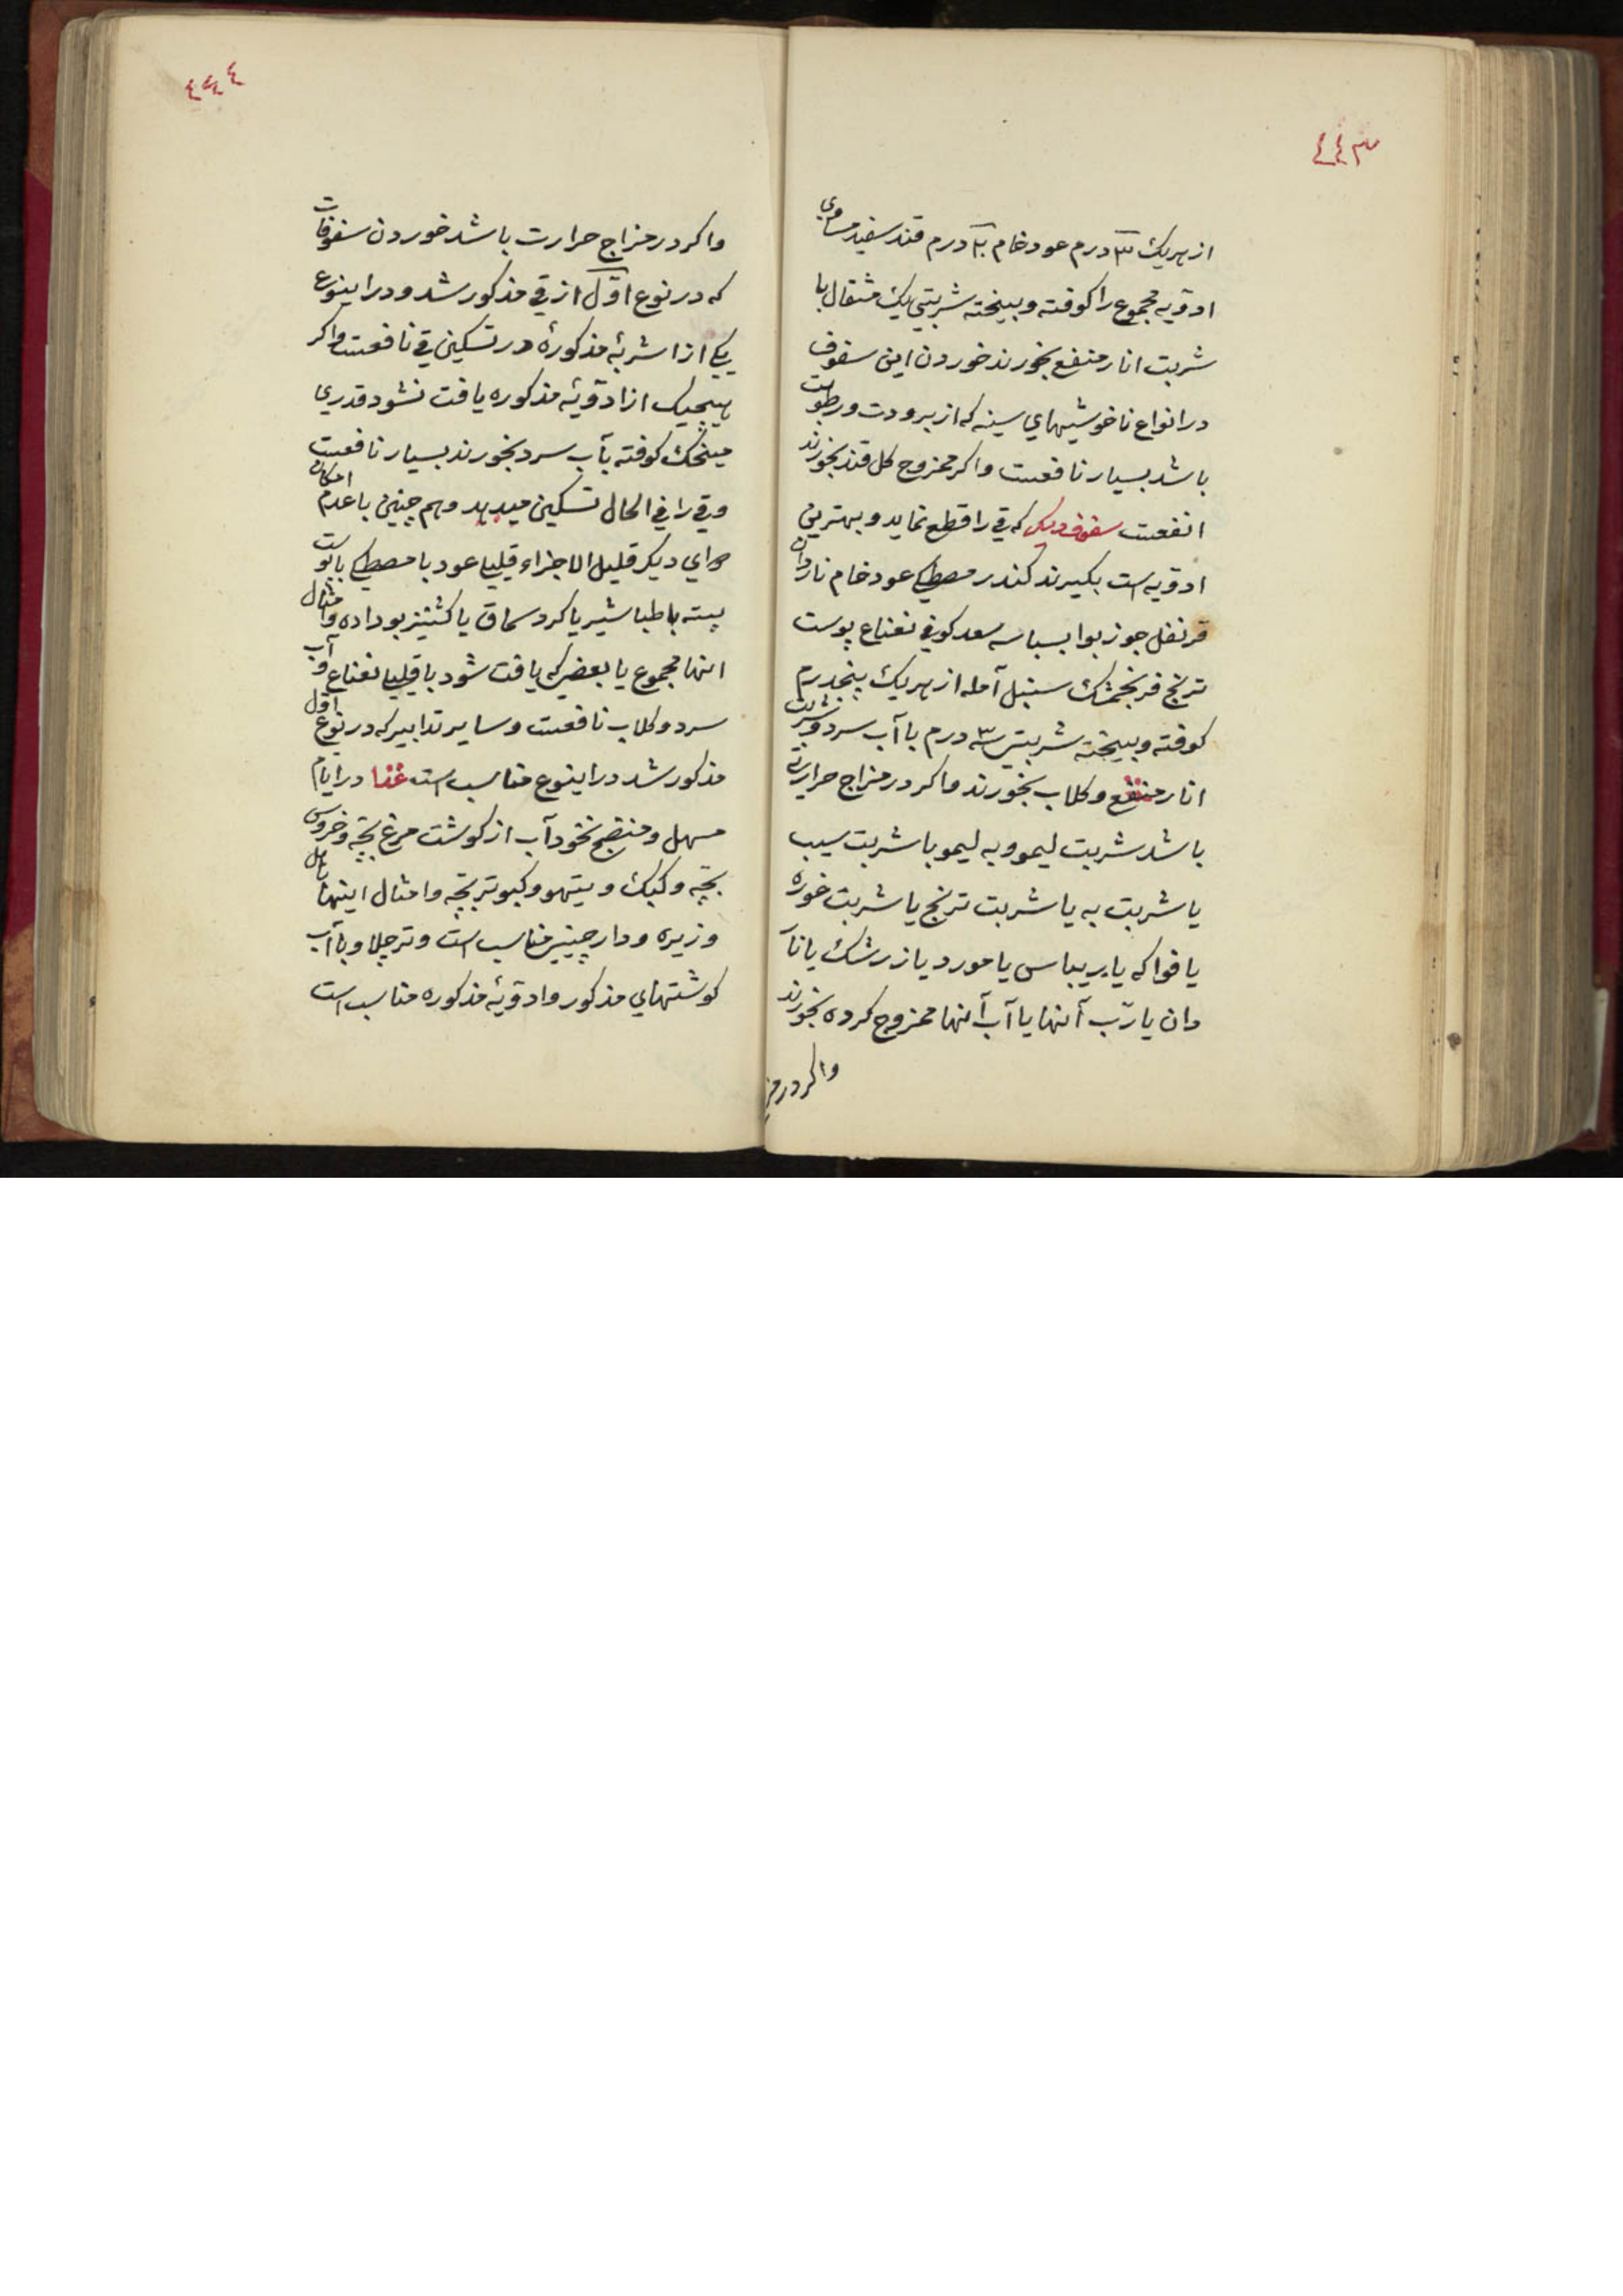 ٤٤٣
از هریک ٣ درم عود خام ٢ درم قند سفید مساوی
ادویه مجموع را کوفته و بیخته شربتی یک مثقال با
شربت انار منعنع بخورند خوردن این سفوف
در انواع ناخوشیهای سینه که از برودت و رطوبت
باشد بسیار نافعست و اکر ممزوج کل قند بخورند
انفعست سفوف دیکر که قی را قطع نماید و بهترین
ادویه است بکیرند کندر مصطکی عود خام ناردان
قرنفل جوز بوا بسباسه سعد کوفی نعناع پوست
ترنج فرنجمشک سنبل آمله از هریک پنجدرم
کوفته و بیخته شربتی ٣ درم با آب سرد و شربت
انار منعنع و کلاب بخورند و اکر در مزاج حرارت
باشد شربت لیمو و به لیمو با شربت سیب
یا شربت به یا شربت ترنج یا شربت غوره
یا فواکه یا ریباس یا مورد یا زرشک یا نار
دان یا رب آنها یا آب آنها ممزوج کرده بخورند
و اکر در مز
٤٤٤
و اکر در مزاج حرارت باشد خوردن سفوفات
که در نوع اول از قی مذکور شد و در اینوع
یکی از اشربهٔ مذکورهٔ در تسکین قی نافعست و اکر
هیچیک از ادویهٔ مذکوره یافت نشود قدری
میخک کوفته بآب سرد بخورند بسیار نافعست
و قی را فی الحال تسکین میدهد و هم چنین با عدم امکان
دوای دیکر قلیل الاجزاء قلیلی عود با مصطکی با پوست
پسته با طباشیر یا کرد سماق یا کشنیز بو داده و امثال
انها مجموع یا بعضی که یافت شود با قلیلی نعناع و آب
سرد و کلاب نافعست و سایر تدابیر که در نوع اول
مذکور شد در اینوع مناسب است غذا در ایام
مسهل و منضج نخود آب از کوشت مرغ بچه و خروس
بچه و کبک و تیهو و کبوتر بچه و امثال اینها با هل
و زیره و دارچینی مناسب است و تر چلاو با آب
کوشتهای مذکور و ادویهٔ مذکوره مناسب است